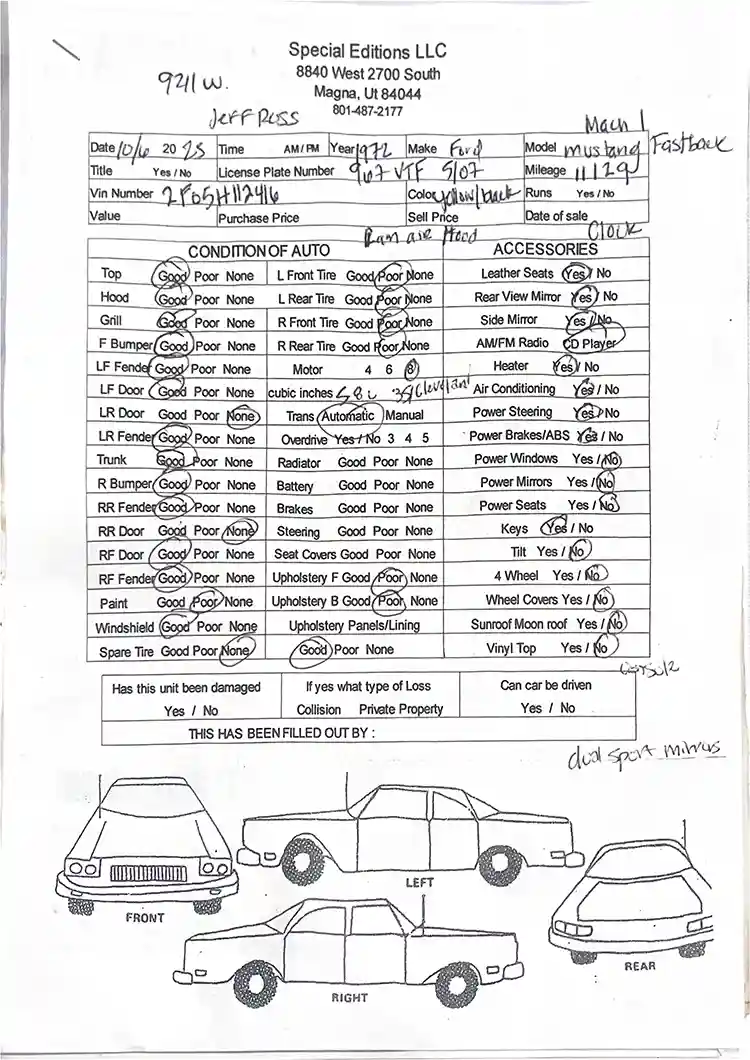 Special Editions LLC
8840 West 2700 South
9211 W.
Magna, Ut 84044
801-487-2177
Jeff Ross
Mach 1
Date 10/6 2025 Time AM / PM Year 1972 Make Ford Model Mustang Fastback
Title Yes / No License Plate Number 967 VTF 5/07 Mileage 11129
Vin Number 2F05H112416 Color yellow/black Runs Yes / No
Value Purchase Price Sell Price Date of sale
Ram air Hood Clock
CONDITION OF AUTO ACCESSORIES
Top Good Poor None L Front Tire Good Poor None Leather Seats Yes / No
Hood Good Poor None L Rear Tire Good Poor None Rear View Mirror Yes / No
Grill Good Poor None R Front Tire Good Poor None Side Mirror Yes / No
F Bumper Good Poor None R Rear Tire Good Poor None AM/FM Radio CD Player
LF Fender Good Poor None Motor 4 6 8 Heater Yes / No
LF Door Good Poor None cubic inches 5.8L 351 Cleveland Air Conditioning Yes / No
LR Door Good Poor None Trans Automatic Manual Power Steering Yes / No
LR Fender Good Poor None Overdrive Yes / No 3 4 5 Power Brakes/ABS Yes / No
Trunk Good Poor None Radiator Good Poor None Power Windows Yes / No
R Bumper Good Poor None Battery Good Poor None Power Mirrors Yes / No
RR Fender Good Poor None Brakes Good Poor None Power Seats Yes / No
RR Door Good Poor None Steering Good Poor None Keys Yes / No
RF Door Good Poor None Seat Covers Good Poor None Tilt Yes / No
RF Fender Good Poor None Upholstery F Good Poor None 4 Wheel Yes / No
Paint Good Poor None Upholstery B Good Poor None Wheel Covers Yes / No
Windshield Good Poor None Upholstery Panels/Lining Sunroof Moon roof Yes / No
Spare Tire Good Poor None Good Poor None Vinyl Top Yes / No
Console
Has this unit been damaged If yes what type of Loss Can car be driven
Yes / No Collision Private Property Yes / No
THIS HAS BEEN FILLED OUT BY :
dual sport mirrors
LEFT
FRONT
REAR
RIGHT